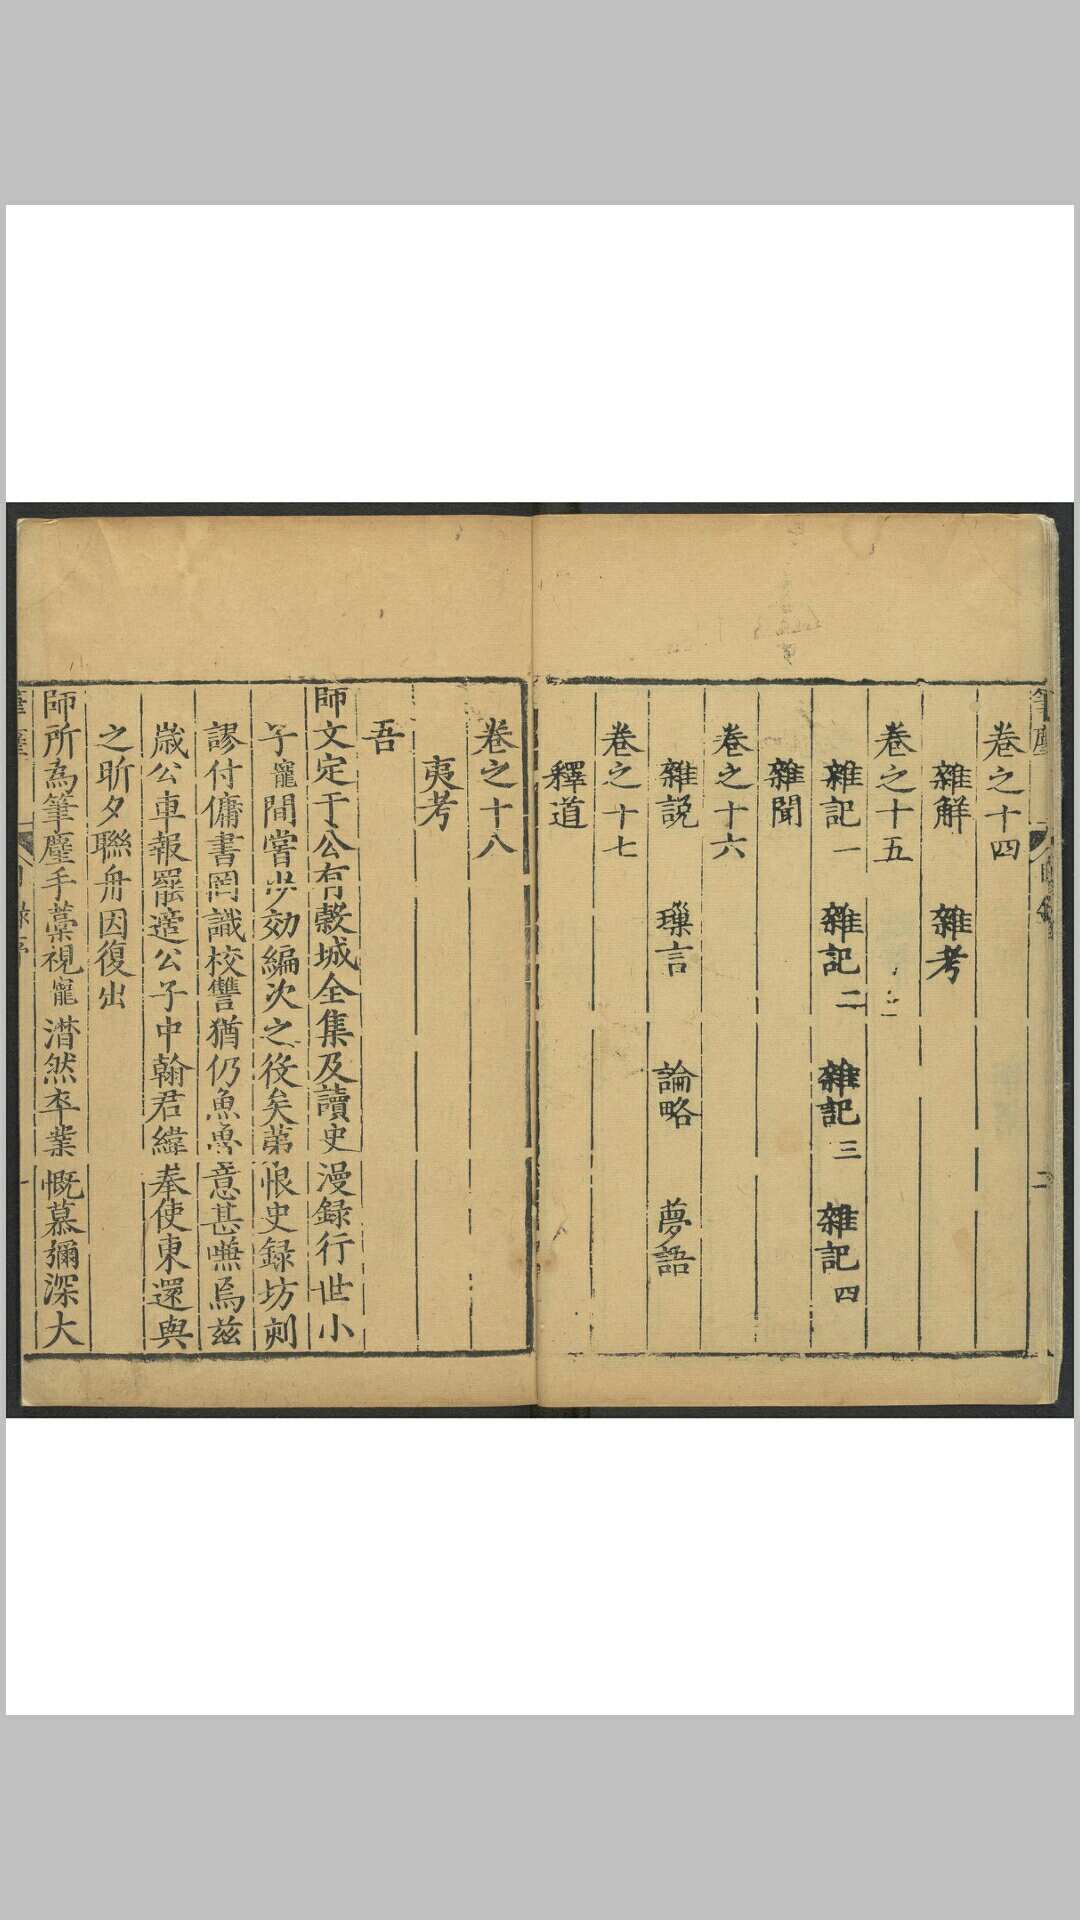 卷之十四
雜解 雜考
卷之十五
雜記一 雜記二 雜記三 雜記四
雜聞
卷之十六
雜説 璅言 論略 夢語
卷之十七
釋道
卷之十八
夷考
吾
師文定于公有榖城全集及讀史漫録行世小
子寵間嘗步効編次之役矣苐恨史録坊刻
謬付傭書罔識校讐猶仍魚魯意甚嗛焉兹
嵗公車報罷適公子中翰君緯奉使東還與
之昕夕聯舟因復出
師所為筆麈手藁視寵潸然卒業慨慕彌深大